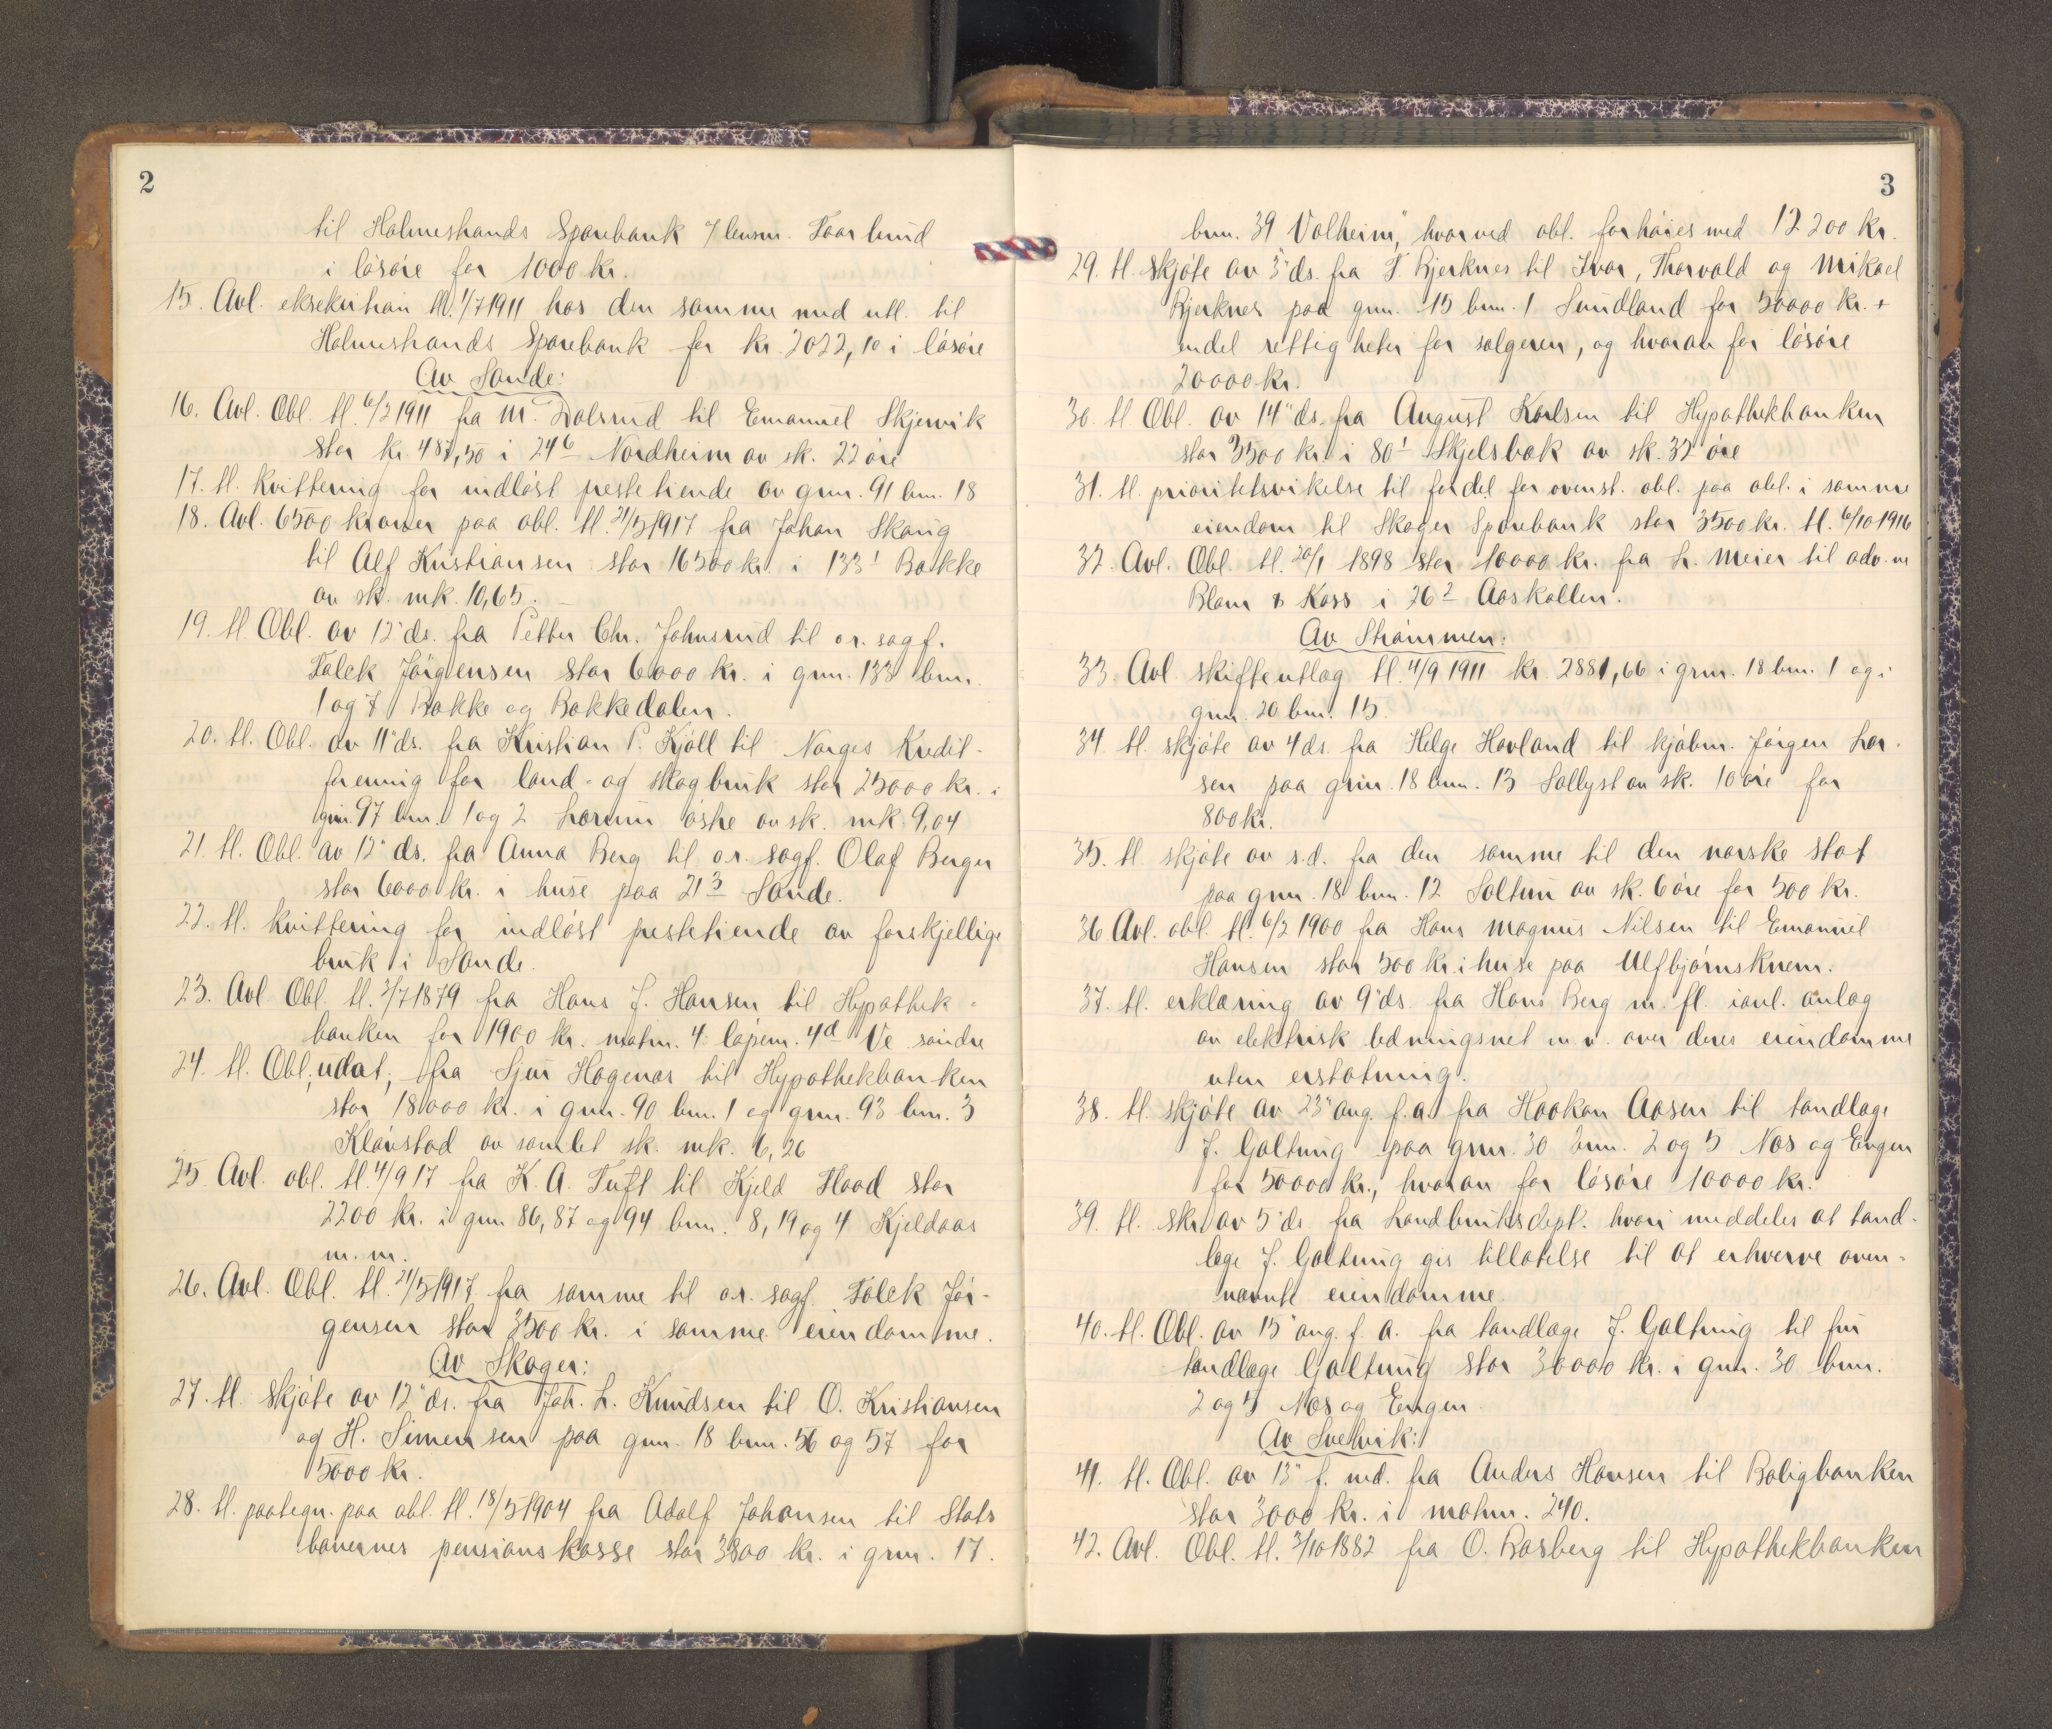 2
til Holmestrands Sparebank Taarlund
i løsøre for 1000 kr.
15. Avl. eksekution tl. 1/7 1911 hos den samme med utl. til
Holmestrands Sparebank for kr. 2022,10 i løsøre
Av Sande:
16. Avl. Obl. tl. 6/2 1911 fra M. Dalsrud til Emanuel Skjervik
stor kr. 487,50 i 24⁶ Nordheim av sk. 22 øre
17. tl. kvittering for indløst prestetiende av gnr. 91 bnr. 18
18. Avl. 6500 kroner paa obl. tl. 21/5 1917 fra Johan Skaug
til Alf Kristiansen stor 16500 kr. i 133¹ Bakke
av sk. mk. 10,65.
19. tl. Obl. av 12" ds. fra Petter Chr. Johnsrud til o.r. sagf.
Falck Jørgensen stor 6000 kr. i gnr. 133 bnr.
1 og 7 Bakke og Bakkedalen.
20. tl. Obl. av 11" ds. fra Kristian P. Kjøll til Norges Kredit-
forening for land- og skogbruk stor 25000 kr. i
gnr. 97 bnr. 1 og 2 Lærum østre av sk. mk. 9,04
21. tl. Obl. av 12" ds. fra Anna Berg til o.r. sagf. Olaf Berger
stor 6000 kr. i huse paa 21³ Sande.
22. tl. kvittering for indløst prestetiende av forskjellige
bruk i Sande.
23. Avl. Obl. tl. 3/7 1879 fra Hans J. Hansen til Hypothek-
banken for 1900 kr. matnr. 4 løpenr. 4d Ve søndre
24. tl. Obl., udat., fra Sjur Hagenæs til Hypothekbanken
stor 18000 kr. i gnr. 90 bnr. 1 og gnr. 93 bnr. 3
Kløvstad av samlet sk. mk. 6,26
25. Avl. obl. tl. 4/9 17 fra K. A. Tuft til Kjeld Haad stor
2200 kr. i gnr 86, 87 og 94 bnr. 8, 19 og 4 Kjeldaas
m. m.
26. Avl. Obl. tl. 21/5 1917 fra samme til o.r. sagf. Falck Jør-
gensen stor 3500 kr. i samme eiendomme.
Av Skoger:
27. tl. skjøte av 12" ds. fra Joh. L. Knudsen til O. Kristiansen
og H. Simensen paa gnr. 18 bnr. 56 og 57 for
5000 kr.
28. tl. paategn. paa obl. tl. 18/5 1904 fra Adolf Johansen til Stats
banernes pensionskasse stor 3800 kr. i gnr. 17.
3
bnr. 39 "Valheim", hvorved obl. forhøies med 12200 kr.
29. tl. skjøte av 3" ds. fra T. Bjerknes til Ivar, Thorvald og Mikael
Bjerknes paa gnr. 15 bnr. 1 Sundland for 50000 kr. +
endel rettigheter for sælgeren, og hvorav for løsøre
20000 kr.
30. tl Obl. av 14" ds. fra August Karlsen til Hypothekbanken
stor 3500 kr. i 80¹ Skjelsbæk av sk. 32 øre
31. tl. prioritetsvikelse til fordel for ovenst. obl. paa obl. i samme
eiendom til Skoger Sparebank stor 3500 kr. tl. 6/10 1916
32. Avl. Obl. tl. 20/1 1898 stor 10000 kr. fra L. Meier til adv.ne
Blom & Koss i 26² Aaskollen.
Av Strømmen:
33. Avl. skifteutlæg tl. 4/9 1911 kr. 2881,66 i gnr. 18 bnr. 1 og i
gnr. 20 bnr. 15.
34. tl. skjøte av 4 ds. fra Helge Havland til kjøbm. Jørgen Lar-
sen paa gnr. 18 bnr. 13 Sollyst av sk. 10 øre for
800 kr.
35. tl. skjøte av s.d. fra den samme til den norske stat
paa gnr. 18 bnr. 12 Soltun av sk. 6 øre for 500 kr.
36 Avl. obl. tl. 6/2 1900 fra Hans Magnus Nilsen til Emanuel
Hansen stor 500 kr. i huse paa Ulfbjørnsknem.
37. tl. erklæring av 9" ds. fra Hans Berg m. fl. ianl. anlæg
av elektrisk ledningsnet m. v. over deres eiendomme
uten erstatning.
38. tl. skjøte av 23" aug. f. a. fra Haakon Aasen til tandlæge
J. Galtung paa gnr. 30 bnr. 2 og 5 Næs og Engen
for 50000 kr., hvorav for løsøre 10000 kr.
39. tl. skr. av 5" ds. fra Landbruksdept. hvori meddeles at tand-
læge J. Galtung gis tillatelse til at erhverve oven-
nævnte eiendomme.
40. tl. Obl. av 15" aug. f. a. fra tandlæge J. Galtung til fru
tandlæge Galtung stor 30000 kr. i gnr. 30 bnr.
2 og 5 Næs og Engen.
Av Svelvik:
41. tl. Obl. av 13" f. md. fra Anders Hansen til Boligbanken
stor 3000 kr. i matnr. 240.
42. Avl. Obl. tl. 3/10 1882 fra O. Rasberg til Hypothekbanken